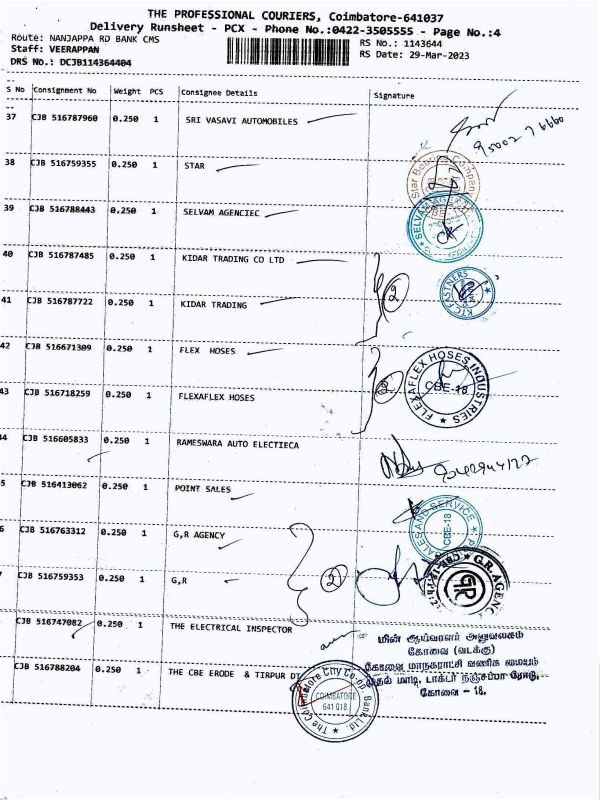 THE PROFESSIONAL COURIERS, Coimbatore-641037
Delivery Runsheet - PCX - Phone No.:0422-3505555 - Page No.:4
Route: NANJAPPA RD BANK CMS
RS No.: 1143644
Staff: VEERAPPAN
RS Date: 29-Mar-2023
DRS No.: DCJB114364404
S No Consignment No Weight PCS Consignee Details Signature
37 CJB 516787960 0.250 1 SRI VASAVI AUTOMOBILES
38 CJB 516759355 0.250 1 STAR
39 CJB 516788443 0.250 1 SELVAM AGENCIEC
SELVAM AGEN
40 CJB 516787485 0.250 1 KIDAR TRADING CO LTD
2
KTC FASTNERS
41 CJB 516787722 0.250 1 KIDAR TRADING
42 CJB 516671309 0.250 1 FLEX HOSES
2
FLEXAFLEX HOSES INDUSTRIES
CBE-18
43 CJB 516718259 0.250 1 FLEXAFLEX HOSES
44 CJB 516605833 0.250 1 RAMESWARA AUTO ELECTIECA
5 CJB 516413062 0.250 1 POINT SALES
SALES AND SERVICE
CBE-18
6 CJB 516763312 0.250 1 G,R AGENCY
2
7 CJB 516759353 0.250 1 G,R
G.R. AGENC
GR
CJB 516747082 0.250 1 THE ELECTRICAL INSPECTOR
மின் ஆய்வாளர் அலுவலகம்
கோவை (வடக்கு)
கோவை மாநகராட்சி வணிக மையம்
முதல் மாடி, டாக்டர் நஞ்சப்பா ரோடு,
கோவை - 18.
CJB 516788204 0.250 1 THE CBE ERODE & TIRPUR DI
The Coimbatore City Co-op. Bank Ltd.
COIMBATORE
641 018